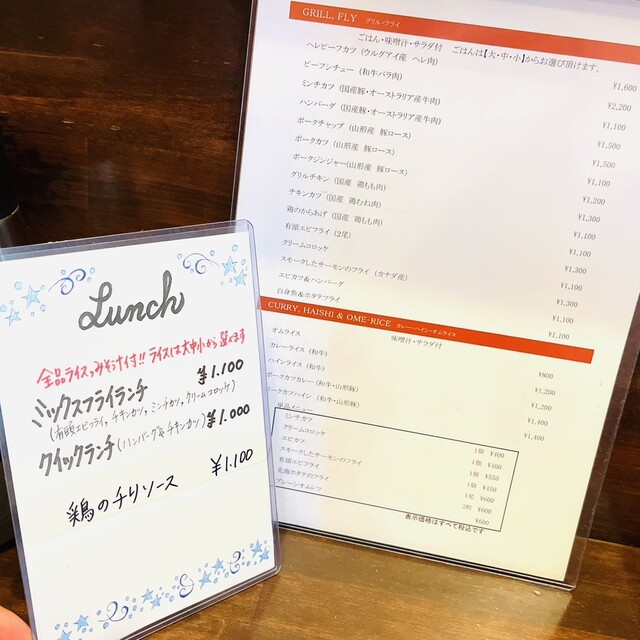 GRILL, FLY グリル・フライ
ごはん・味噌汁・サラダ付 ごはんは【大・中・小】からお選び頂けます。
ヘレビーフカツ（ウルグアイ産 ヘレ肉） ¥1,600
ビーフシチュー（和牛バラ肉） ¥2,200
ミンチカツ（国産豚・オーストラリア産牛肉） ¥1,100
ハンバーグ（国産豚・オーストラリア産牛肉） ¥1,500
ポークチャップ（山形産 豚ロース） ¥1,500
ポークカツ（山形産 豚ロース） ¥1,100
ポークジンジャー（山形産 豚ロース） ¥1,200
グリルチキン（国産 鶏もも肉） ¥1,300
チキンカツ（国産 鶏むね肉） ¥1,100
鶏のからあげ（国産 鶏もも肉） ¥1,100
有頭エビフライ（2尾） ¥1,300
クリームコロッケ ¥1,100
スモークしたサーモンのフライ（カナダ産） ¥1,300
エビカツ＆ハンバーグ ¥1,100
白身魚＆ホタテフライ ¥1,100
CURRY, HAISHI & OME-RICE カレー・ハイシ・オムライス
味噌汁・サラダ付
オムライス ¥800
カレーライス（和牛） ¥1,200
ハイシライス（和牛） ¥1,200
ポークカツカレー（和牛・山形豚） ¥1,400
ポークカツハイシ（和牛・山形豚） ¥1,400
単品メニュー
ミンチカツ 1個 ¥400
クリームコロッケ 1個 ¥400
エビカツ 1個 ¥550
スモークしたサーモンのフライ 1個 ¥450
有頭エビフライ 1尾 ¥600
北海ホタテのフライ 2粒 ¥600
プレーンオムレツ ¥600
表示価格はすべて税込です
Lunch
全品ライス、みそ汁付!! ライスは大中小から選べます
ミックスフライランチ ¥1.100
（有頭エビフライ、チキンカツ、ミンチカツ、クリームコロッケ）
クイックランチ（ハンバーグ&チキンカツ） ¥1.000
鶏のチリソース ¥1.100